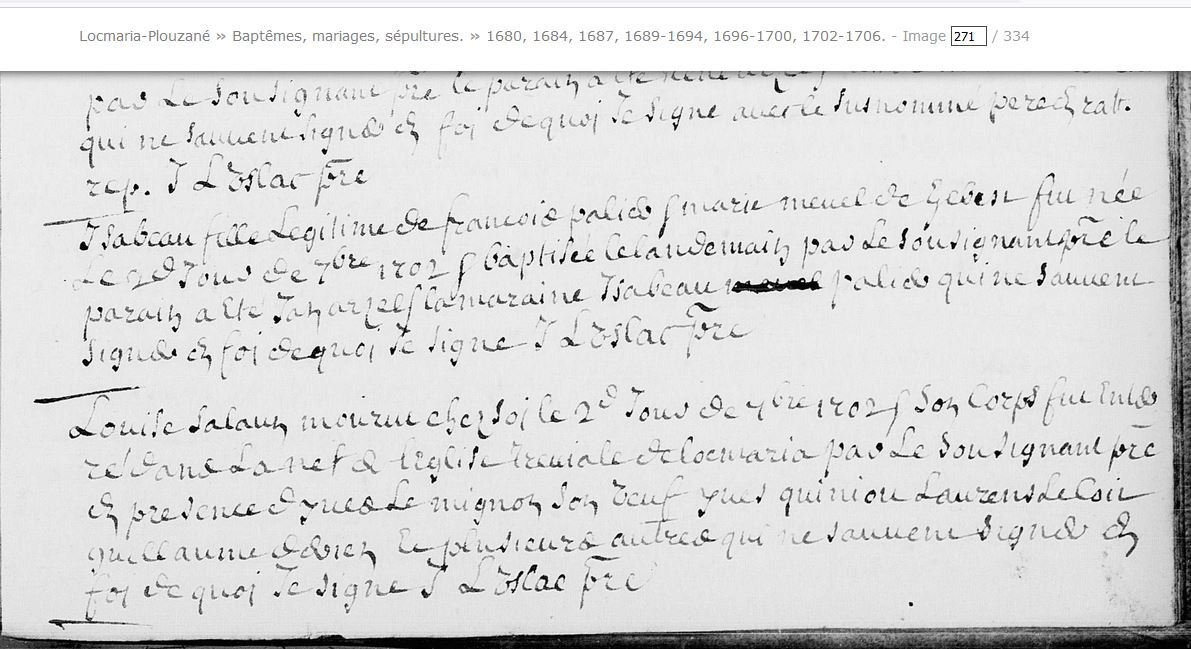 Locmaria-Plouzané » Baptêmes, mariages, sépultures. » 1680, 1684, 1687, 1689-1694, 1696-1700, 1702-1706. - Image 271 / 334
par Le Sousignant pre le parain a ete
qui ne sauvent signer en foi dequoi Je signe avec le susnommé pere
rep. J L pre
Isabeau fille Legitime de francois palier & marie menel de fut née
Le 2d Jour de 7bre 1702 & baptisée le landemain par Le Sousignant pre le
parain a Eté Jan & la maraine Isabeau palier qui ne sauvent
signer en foi dequoi Je signe J L pre
Louise Salaun mourut chez soi le 2d Jour de 7bre 1702 & Son Corps fut Enter
ré dans La nef de l'Eglise treviale de locmaria par Le Sousignant pre
en presence d yves Le mignon Son veuf yves quiniou Laurens
guillaume Et plusieurs autres qui ne sauvent signer En
foi de quoi Je signe J L pre